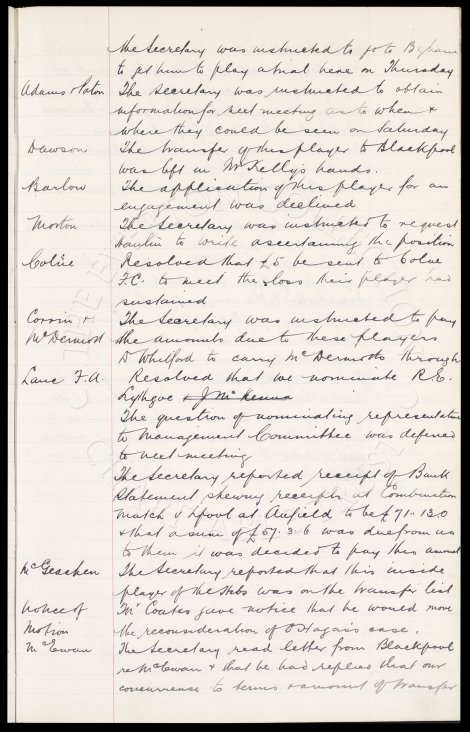 the Secretary was instructed to go to
to get him to play a trial here on Thursday
Adams & Paton The Secretary was instructed to obtain
information for next meeting as to when &
where they could be seen on Saturday
Dawson The transfer of this player to Blackpool
was left in Mr Kelly's hands.
Barlow The application of this player for an
engagement was declined
Morton The Secretary was instructed to request
to write ascertaining the position
Colne Resolved that £5 be sent to Colne
F.C. to meet the loss their player had
sustained
Corrin & The Secretary was instructed to pay
McDermott the amounts due to these players
D Whitford to carry McDermotts through
Lanc F.A. Resolved that we nominate R.E.
Lythgoe & J McKenna
The question of nominating representative
to Management Committee was deferred
to next meeting
The Secretary reported receipt of Bank
Statement shewing receipts at Combination
Match v Lpool at Anfield to be £71..13.0
& that a sum of £57.3.6 was due from us
to them it was decided to pay this amount
McGeachen The Secretary reported that this inside
player of the Hibs was on the transfer list
Notice of Mr Coates gave notice that he would move
Motion the reconsideration of O'Hagan's case.
McEwan The Secretary read letter from Blackpool
re McEwan & that he had replied that our
concurrence to terms & amount of transfer